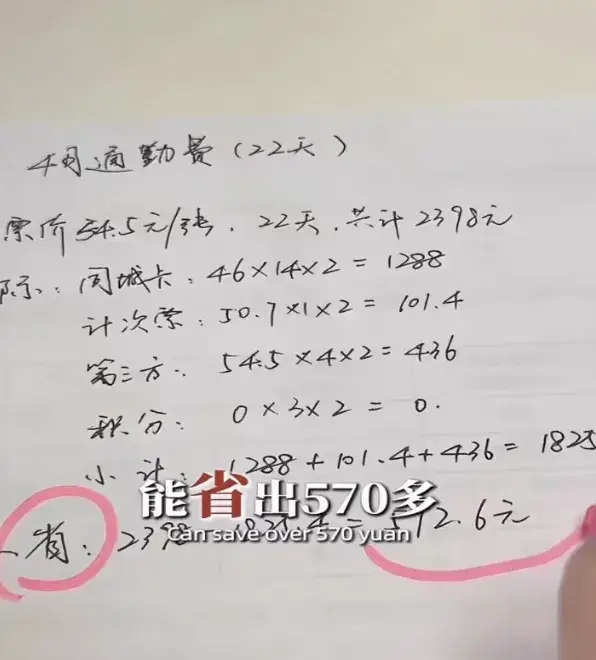 4月通勤费(22天)
票价54.5元/张，22天，共计2398元
际：同城卡：46×14×2=1288
计次票：50.7×1×2=101.4
第三方：54.5×4×2=436
积分：0×3×2=0.
小计：1288+101.4+436=1825
能省出570多
省：2398-1825.4=572.6元
Can save over 570 yuan